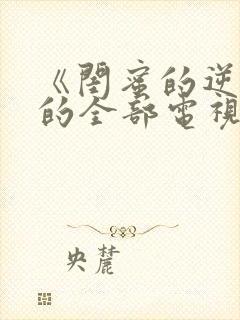 《闺蜜的逆
的全部電視
央麓